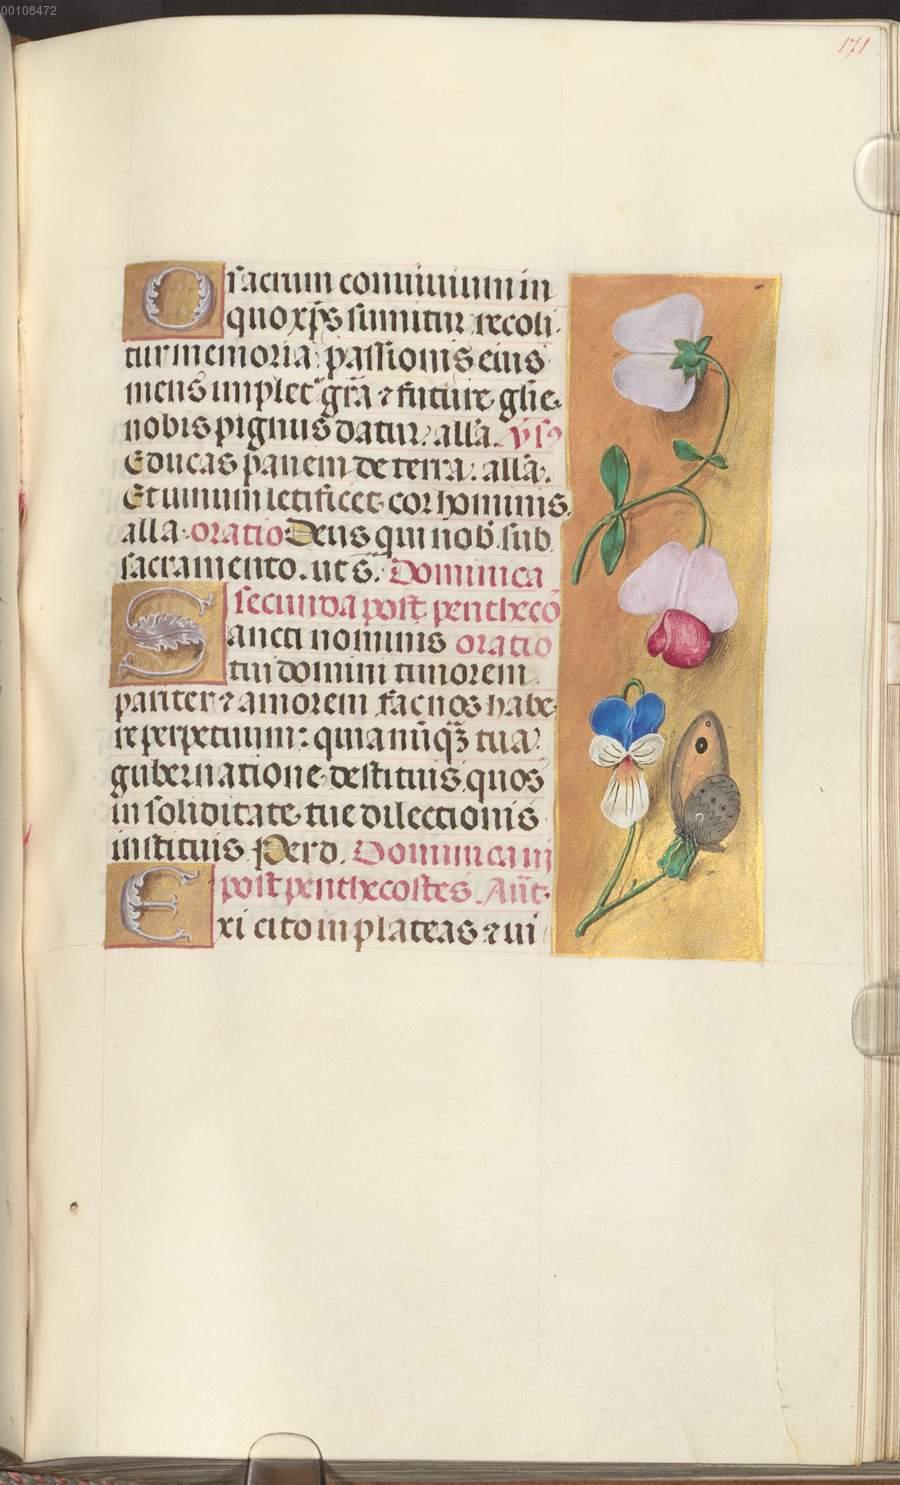 00108472
171
O sacrum conuiuium in
quo xp̄s sumitur recoli
tur memoria: passionis eius
mens impletᷣ gr̄a ⁊ future glīe
nobis pignus datur, all̄a. v̄sꝰ
Educas panem de terra. all̄a.
Et uinum letificet cor hominis
alla. oratio Deus qui nob̄ sub
sacramento. ut s̄. Dominica
secunda post penthecō
Sancti nominis oratio
tui domini timorem
pariter ⁊ amorem fac nos habe
re perpetuum: quia nūqꝫ tua
gubernatione destituis quos
in soliditate tue dilectionis
instituis. Per d. Dominca iij
post penthecostes. Añt.
Exi cito in plateas ⁊ ui